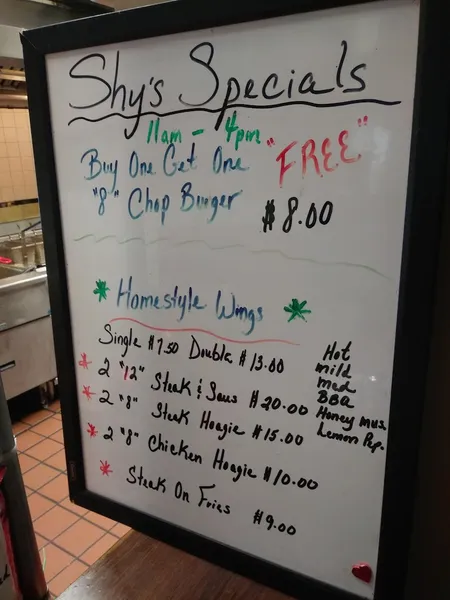 Shy's Specials
11am - 4pm
Buy One Get One "FREE"
"8" Chop Burger $8.00
* Homestyle Wings *
Single $7.50 Double $13.00
* 2 "12" Steak & Saus $20.00
* 2 "8" Steak Hoagie $15.00
* 2 "8" Chicken Hoagie $10.00
* Steak On Fries $9.00
Hot
mild
med
BBQ
Honey mus.
Lemon Pep.